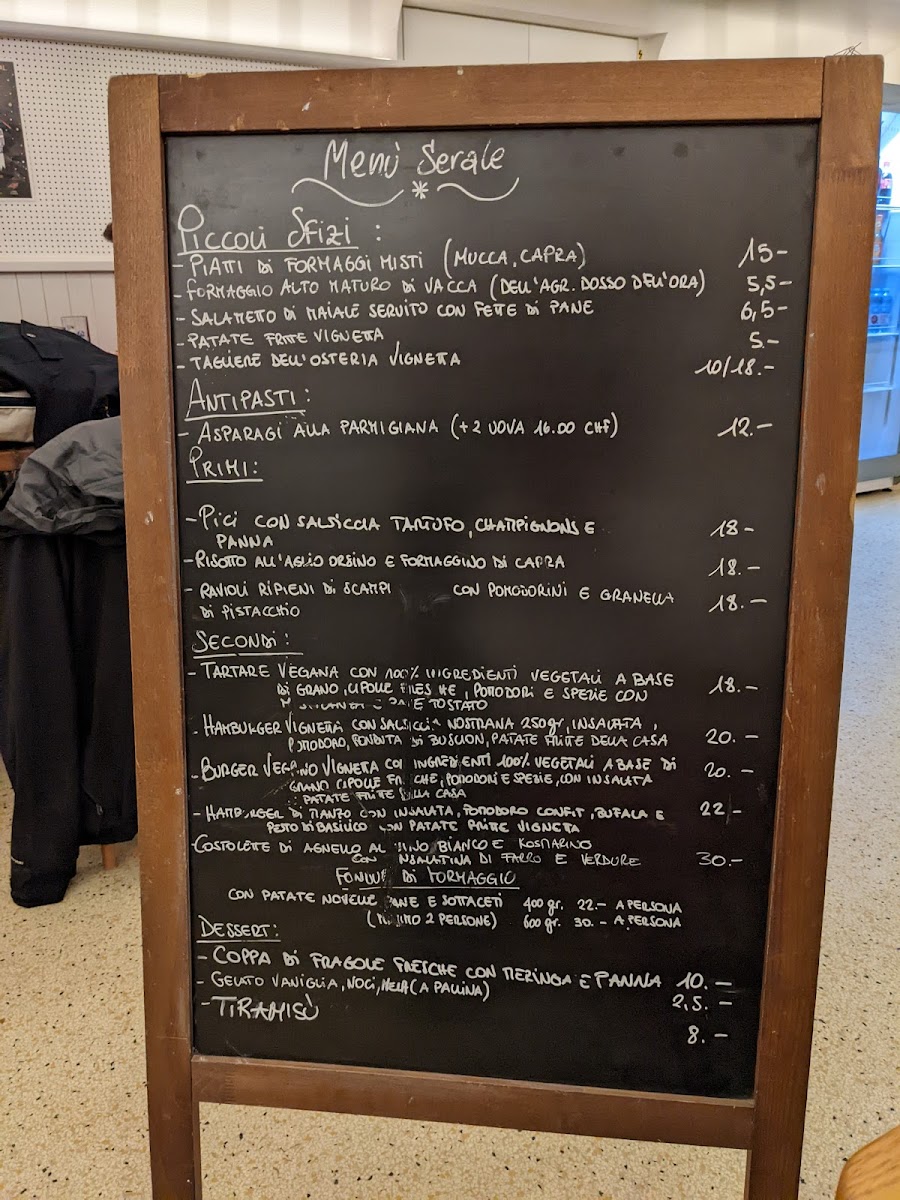 Menù Serale
Piccoli Sfizi :
- Piatti di formaggi misti (mucca, capra) 15-
- Formaggio alto maturo di vacca (dell'Agr. Dosso dell'Ora) 5,5-
- Salametto di maiale servito con fette di pane 6,5-
- Patate fritte Vignetta 5.-
- Tagliere dell'Osteria Vignetta 10/18.-
Antipasti :
- Asparagi alla parmigiana (+ 2 uova 16.00 CHF) 12.-
Primi :
- Pici con salsiccia tartufo, champignons e 18-
panna
- Risotto all'aglio orsino e formaggino di capra 18.-
- Ravioli ripieni di scampi con pomodorini e granella 18.-
di pistacchio
Secondi :
- Tartare vegana con 100% ingredienti vegetali a base 18.-
di grano, cipolle fresche, pomodori e spezie con
pane tostato
- Hamburger Vignetta con salsiccia nostrana 250gr, insalata, 20.-
pomodoro, fonduta di Buscion, patate fritte della casa
- Burger vegano Vignetta con ingredienti 100% vegetali a base di 20.-
grano cipolle fresche, pomodori e spezie, con insalata
patate fritte della casa
- Hamburger di manzo con insalata, pomodoro confit, bufala e 22-
pesto di basilico con patate fritte Vignetta
- Costolete di agnello al vino bianco e rosmarino
con insalatina di farro e verdure 30.-
Fondue di formaggio
con patate novelle pane e sottaceti 400 gr. 22.- a persona
(minimo 2 persone) 600 gr. 30.- a persona
Dessert :
- Coppa di fragole fresche con meringa e panna 10.-
- Gelato vaniglia, noci, mela (a pallina) 2,5.-
- Tiramisù
8.-